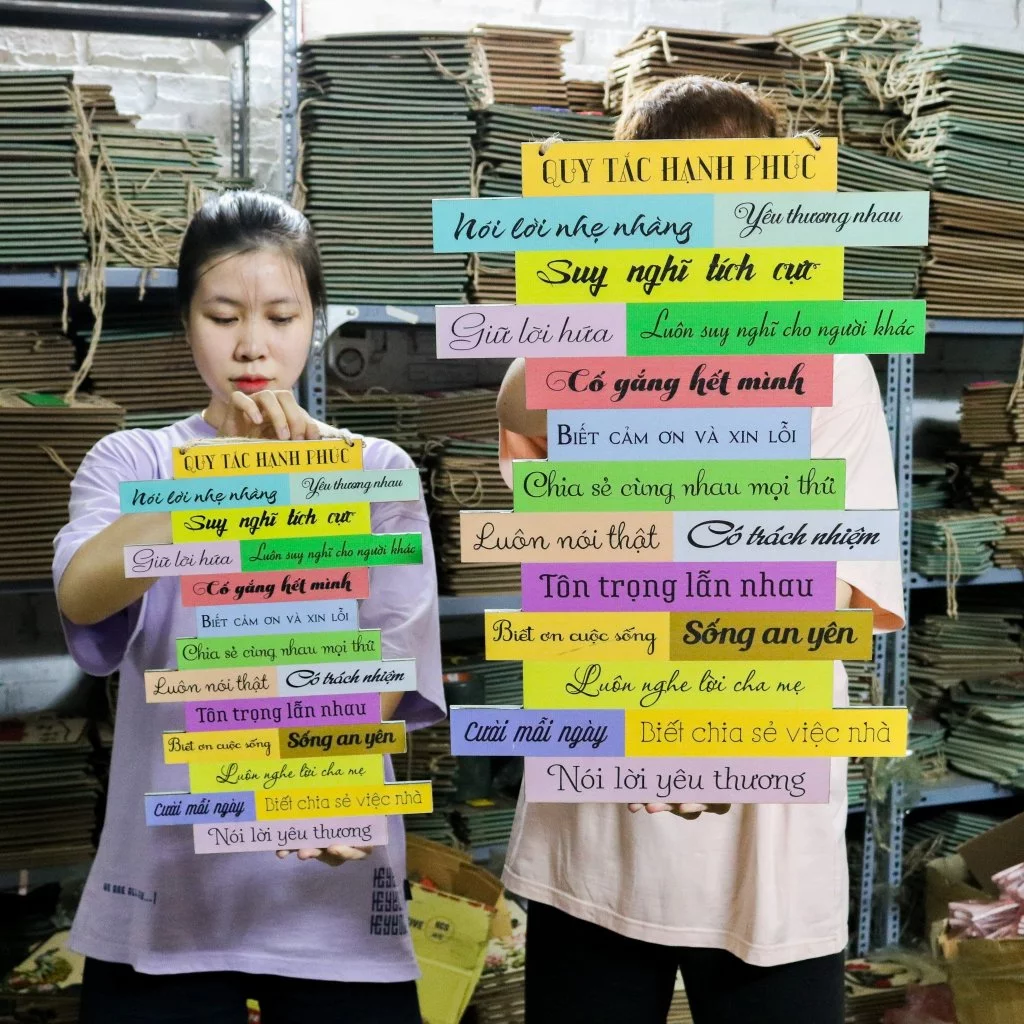 QUY TẮC HẠNH PHÚC
Nói lời nhẹ nhàng Yêu thương nhau
Suy nghĩ tích cực
Giữ lời hứa Luôn suy nghĩ cho người khác
Cố gắng hết mình
BIẾT CẢM ƠN VÀ XIN LỖI
Chia sẻ cùng nhau mọi thứ
Luôn nói thật Có trách nhiệm
Tôn trọng lẫn nhau
Biết ơn cuộc sống Sống an yên
Luôn nghe lời cha mẹ
Cười mỗi ngày Biết chia sẻ việc nhà
Nói lời yêu thương
QUY TẮC HẠNH PHÚC
Nói lời nhẹ nhàng Yêu thương nhau
Suy nghĩ tích cực
Giữ lời hứa Luôn suy nghĩ cho người khác
Cố gắng hết mình
BIẾT CẢM ƠN VÀ XIN LỖI
Chia sẻ cùng nhau mọi thứ
Luôn nói thật Có trách nhiệm
Tôn trọng lẫn nhau
Biết ơn cuộc sống Sống an yên
Luôn nghe lời cha mẹ
Cười mỗi ngày Biết chia sẻ việc nhà
Nói lời yêu thương